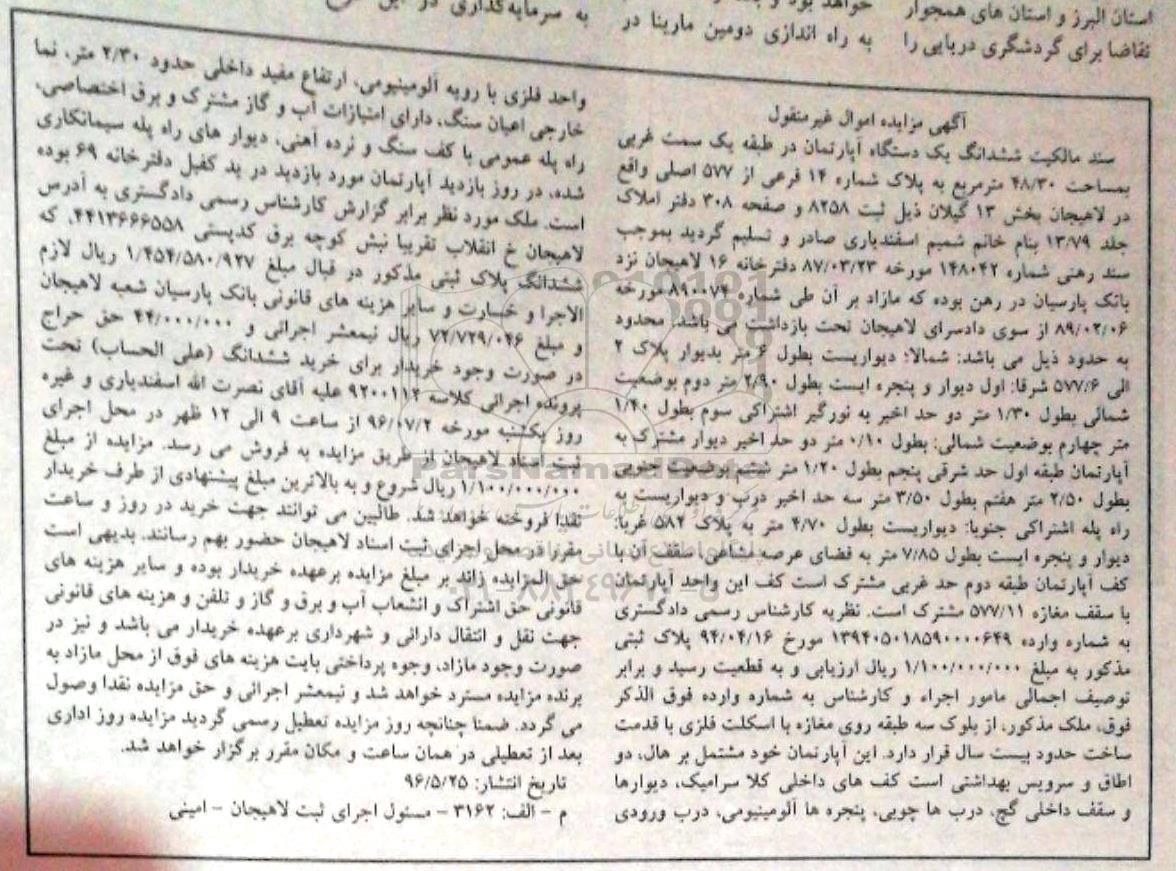 استان البرز و استان های همجوار
تقاضا برای گردشگری دریایی را
خواهد بود و
به راه اندازی دومین مارینا در
به سرمایه‌گذاری در این
آگهی مزایده اموال غیرمنقول
سند مالکیت ششدانگ یک دستگاه آپارتمان در طبقه یک سمت غربی
بمساحت ۴۸/۳۰ مترمربع به پلاک شماره ۱۴ فرعی از ۵۷۷ اصلی واقع
در لاهیجان بخش ۱۳ گیلان ذیل ثبت ۸۲۵۸ و صفحه ۳۰۸ دفتر املاک
جلد ۱۳/۷۹ بنام خانم شمیم اسفندیاری صادر و تسلیم گردید بموجب
سند رهنی شماره ۱۴۸۰۴۲ مورخه ۸۷/۰۳/۲۳ دفترخانه ۱۶ لاهیجان نزد
بانک پارسیان در رهن بوده که مازاد بر آن طی شماره ۸۹۰۰۷۴ مورخه
۸۹/۰۲/۰۶ از سوی دادسرای لاهیجان تحت بازداشت می باشد. محدود
به حدود ذیل می باشد: شمالا: دیواریست بطول ۶ متر بدیوار پلاک ۲
الی ۵۷۷/۶ شرقا: اول دیوار و پنجره ایست بطول ۲/۹۰ متر دوم بوضعیت
شمالی بطول ۱/۳۰ متر دو حد اخیر به نورگیر اشتراکی سوم بطول ۱/۴۰
متر چهارم بوضعیت شمالی: بطول ۰/۱۰ متر دو حد اخیر دیوار مشترک به
آپارتمان طبقه اول حد شرقی پنجم بطول ۱/۲۰ متر ششم بوضعیت جنوبی
بطول ۲/۵۰ متر هفتم بطول ۳/۵۰ متر سه حد اخیر درب و دیواریست به
راه پله اشتراکی جنوبا: دیواریست بطول ۴/۷۰ متر به پلاک ۵۸۲ غربا:
دیوار و پنجره ایست بطول ۷/۸۵ متر به فضای عرصه مشاعی. سقف آن با
کف آپارتمان طبقه دوم حد غربی مشترک است کف این واحد آپارتمان
با سقف مغازه ۵۷۷/۱۱ مشترک است. نظریه کارشناس رسمی دادگستری
به شماره وارده ۱۳۹۴۰۵۰۱۸۵۹۰۰۰۰۶۴۹ مورخ ۹۴/۰۴/۱۶ پلاک ثبتی
مذکور به مبلغ ۱/۱۰۰/۰۰۰/۰۰۰ ریال ارزیابی و به قطعیت رسید و برابر
توصیف اجمالی مامور اجراء و کارشناس به شماره وارده فوق الذکر
فوق، ملک مذکور، از بلوک سه طبقه روی مغازه با اسکلت فلزی با قدمت
ساخت حدود بیست سال قرار دارد. این آپارتمان خود مشتمل بر هال، دو
اطاق و سرویس بهداشتی است کف های داخلی کلا سرامیک، دیوارها
و سقف داخلی گچ، درب ها چوبی، پنجره ها آلومینیومی، درب ورودی
واحد فلزی با رویه آلومینیومی، ارتفاع مفید داخلی حدود ۲/۳۰ متر، نما
خارجی اعیان سنگ، دارای امتیازات آب و گاز مشترک و برق اختصاصی،
راه پله عمومی با کف سنگ و نرده آهنی، دیوار های راه پله سیمانکاری
شده، در روز بازدید آپارتمان مورد بازدید در ید کفیل دفترخانه ۶۹ بوده
است. ملک مورد نظر برابر گزارش کارشناس رسمی دادگستری به آدرس
لاهیجان خ انقلاب تقریبا نبش کوچه برق کدپستی ۴۴۱۳۶۶۶۵۵۸، که
ششدانگ پلاک ثبتی مذکور در قبال مبلغ ۱/۴۵۴/۵۸۰/۹۲۷ ریال لازم
الاجرا و خسارت و سایر هزینه های قانونی بانک پارسیان شعبه لاهیجان
و مبلغ ۷۲/۷۲۹/۰۴۶ ریال نیمعشر اجرائی و ۴۴/۰۰۰/۰۰۰ حق حراج
در صورت وجود خریدار برای خرید ششدانگ (علی الحساب) تحت
پرونده اجرائی کلاسه ۹۲۰۰۱۱۲ علیه آقای نصرت الله اسفندیاری و غیره
روز یکشنبه مورخه ۹۶/۰۷/۲ از ساعت ۹ الی ۱۲ ظهر در محل اجرای
ثبت اسناد لاهیجان از طریق مزایده به فروش می رسد. مزایده از مبلغ
۱/۱۰۰/۰۰۰/۰۰۰ ریال شروع و به بالاترین مبلغ پیشنهادی از طرف خریدار
نقدا فروخته خواهد شد. طالبین می توانند جهت خرید در روز و ساعت
مقرر در محل اجرای ثبت اسناد لاهیجان حضور بهم رسانند. بدیهی است
حق المزایده زائد بر مبلغ مزایده برعهده خریدار بوده و سایر هزینه های
قانونی حق اشتراک و انشعاب آب و برق و گاز و تلفن و هزینه های قانونی
جهت نقل و انتقال دارائی و شهرداری برعهده خریدار می باشد و نیز در
صورت وجود مازاد، وجوه پرداختی بابت هزینه های فوق از محل مازاد به
برنده مزایده مسترد خواهد شد و نیمعشر اجرائی و حق مزایده نقدا وصول
می گردد. ضمنا چنانچه روز مزایده تعطیل رسمی گردید مزایده روز اداری
بعد از تعطیلی در همان ساعت و مکان مقرر برگزار خواهد شد.
تاریخ انتشار: ۹۶/۵/۲۵
م - الف: ۳۱۶۲ - مسئول اجرای ثبت لاهیجان - امینی
ParsNamadData